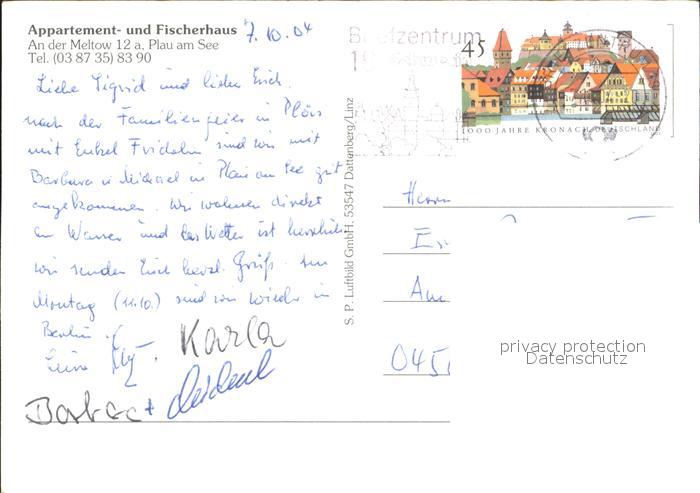 Appartement- und Fischerhaus
An der Meltow 12 a, Plau am See
Tel. (03 87 35) 83 90
7.10.04
Liebe Sigrid und lieber Erich,
nach der Familienfeier in
mit Enkel Fridolin sind wir mit
Barbara u Michael in Plau am See gut
angekommen. Wir wohnen direkt
am Wasser und das Wetter ist herrlich
wir senden Euch herzl. Grüße. Am
Montag (11.10.) sind wir wieder in
Berlin.
Karla
Barbara +
S. P. Luftbild GmbH, 53547 Dattenberg/Linz
Briefzentrum
45
1000 JAHRE KRONACH DEUTSCHLAND
Herrn
Am
045
privacy protection
Datenschutz